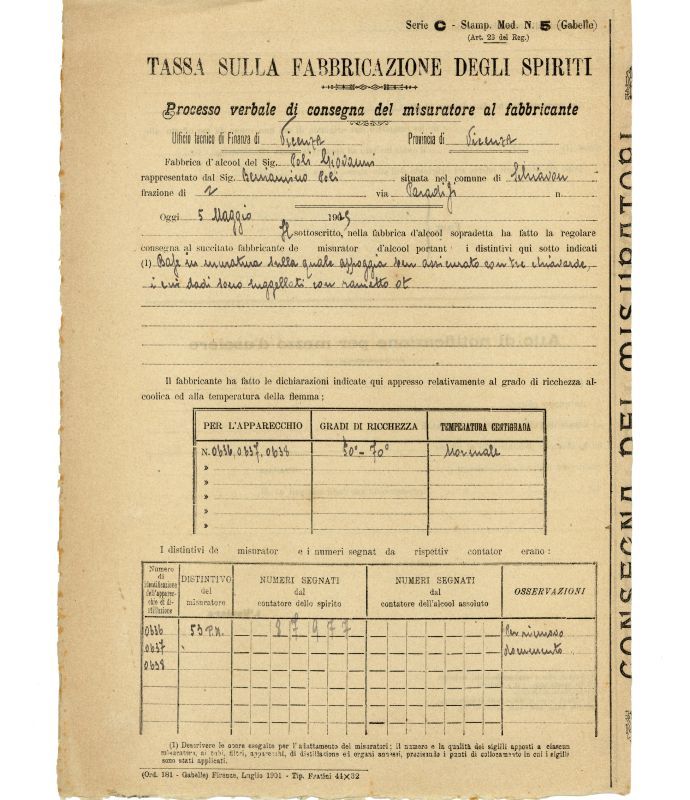 Serie C - Stamp. Mod. N. 5 (Gabelle)
(Art. 23 del Reg.)
TASSA SULLA FABBRICAZIONE DEGLI SPIRITI
Processo verbale di consegna del misuratore al fabbricante
Ufficio tecnico di Finanza di Vicenza Provincia di Vicenza
Fabbrica d'alcool del Sig. Poli Giovanni
rappresentato dal Sig. Beniamino Poli situata nel comune di Schiavon
frazione di via Paradisi n.
Oggi 5 Maggio 19
Il sottoscritto, nella fabbrica d'alcool sopradetta ha fatto la regolare
consegna al succitato fabbricante de misurator d'alcool portant i distintivi qui sotto indicati
(1) Base in muratura sulla quale appoggia ben assicurato con tre chiavarde,
i cui dadi sono suggellati con rametto
Il fabbricante ha fatto le dichiarazioni indicate qui appresso relativamente al grado di ricchezza al-
coolica ed alla temperatura della flemma:
PER L'APPARECCHIO GRADI DI RICCHEZZA TEMPERATURA CENTIGRADA
N. 0636, 0637, 0638 50°-70° Normale
»
»
»
»
I distintivi de misurator e i numeri segnat da rispettiv contator erano:
Numero di identificazione dell'apparec-chio di di-stillazione DISTINTIVO del misuratore NUMERI SEGNATI dal contatore dello spirito NUMERI SEGNATI dal contatore dell'alcool assoluto OSSERVAZIONI
0636 53 P.N. 27977 Per rimosso
0637 documento
0638
(1) Descrivere le opere eseguite per l'adattamento dei misuratori; il numero e la qualità dei sigilli apposti a ciascun
misuratore, ai tubi, filtri, apparecchi, di distillazione ed organi annessi, precisando i punti di collocamento in cui i sigilli
sono stati applicati.
(Ord. 181 - Gabelle) Firenze, Luglio 1901 - Tip. Fratini 44×32
CONSEGNA DEI MISURATORI